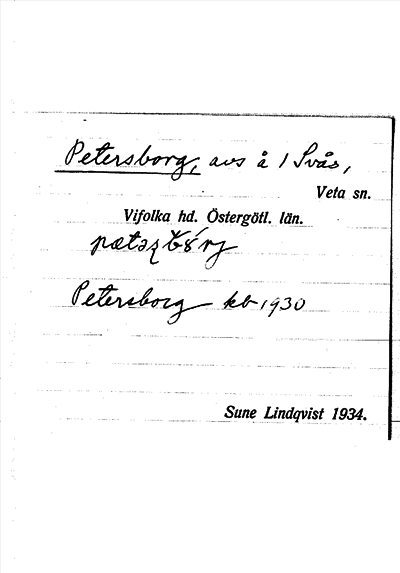 Petersborg, avs å 1 Svås,
Veta sn.
Vifolka hd. Östergötl. län.
Petersborg kb 1930
Sune Lindqvist 1934.